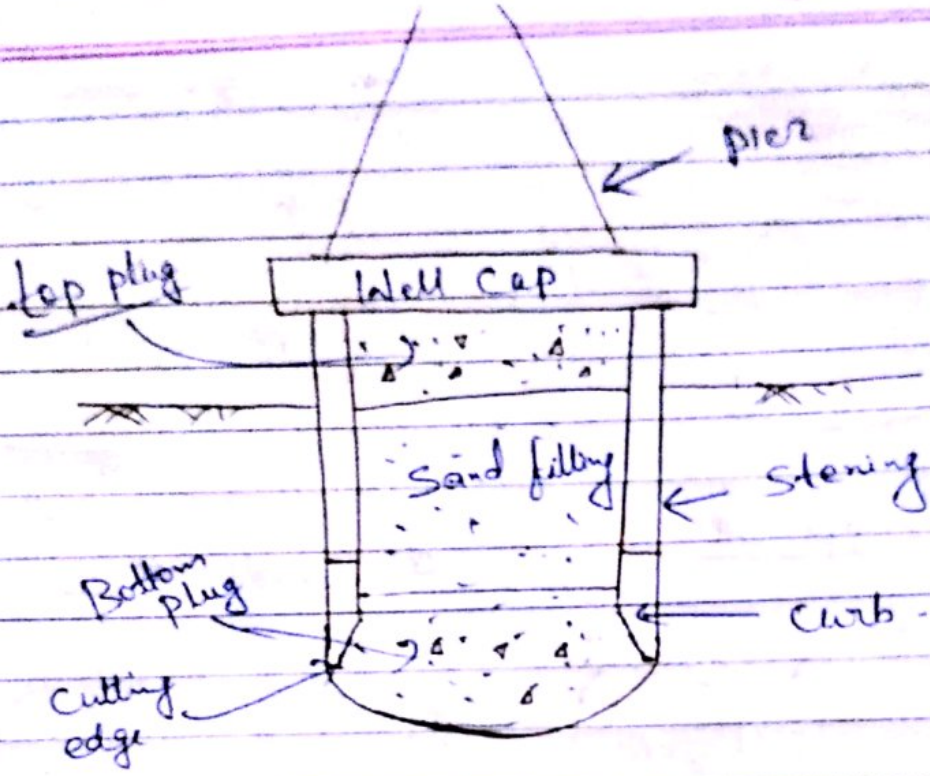 pier
top plug
Well Cap
Sand filling
Stening
Bottom
plug
Curb
Cutting
edge